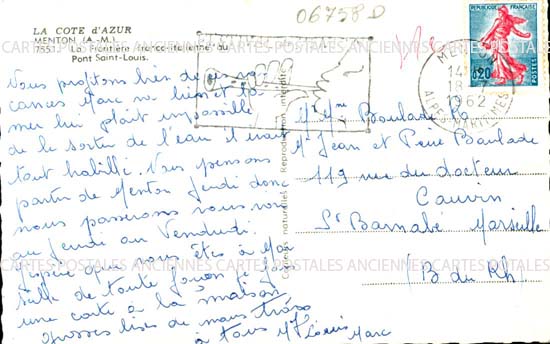 06758D
LA COTE d'AZUR
MENTON (A.-M.)
7551. La Frontière Franco-Italienne au
Pont Saint-Louis.
Vous profitons bien de ces va
cances Marc va bien et la
mer lui plait impossible
de le sortir de l'eau il irait
tout habillé. Nous pensons
partir de Menton Jeudi donc
nous passerons vous voir
au Jeudi au Vendredi.
J'espère que vous êtes à Mar
seille de toute façon
une carte à la maison.
Grosses bises de nous trois
à tous
Marc
Couleurs naturelles Reproduction interdite
REPUBLIQUE FRANÇAISE
0,20
POSTES
18
1962
ALPES MARITIMES
Mr Mme Boulade
Mr Jean et Pierre Boulade
119 rue du docteur
Cauvin
St Barnabé Marseille
(B du Rh)
CARTES POSTALES ANCIENNES CARTES POSTALES ANCIENNES CARTES POSTALES ANCIENNES